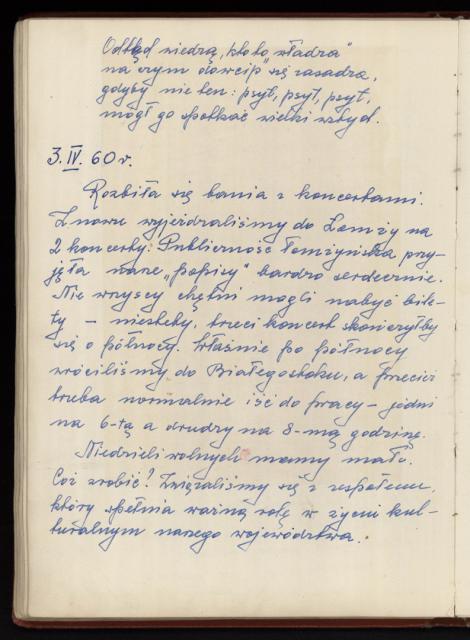 Odtąd wiedzą, kto to „władza”
na czym dowcip się zasadza,
gdyby nie ten: psyt, psyt, psyt,
mógł go spotkać wielki wstyd.
3.IV.60 r.
Rozbiła się bania z koncertami.
Znowu wyjeżdżaliśmy do Łomży na
2 koncerty. Publiczność łomżyńska przy-
jęła nasze „popisy” bardzo serdecznie.
Nie wszyscy chętni mogli nabyć bile-
ty – niestety, trzeci koncert skończyłby
się o północy. Właśnie po północy
wróciliśmy do Białegostoku, a przecież
trzeba normalnie iść do pracy – jedni
na 6-tą a drudzy na 8-mą godzinę.
Niedzieli wolnych mamy mało.
Cóż zrobić? Związaliśmy się z zespołem,
który spełnia ważną rolę w życiu kul-
turalnym naszego województwa.